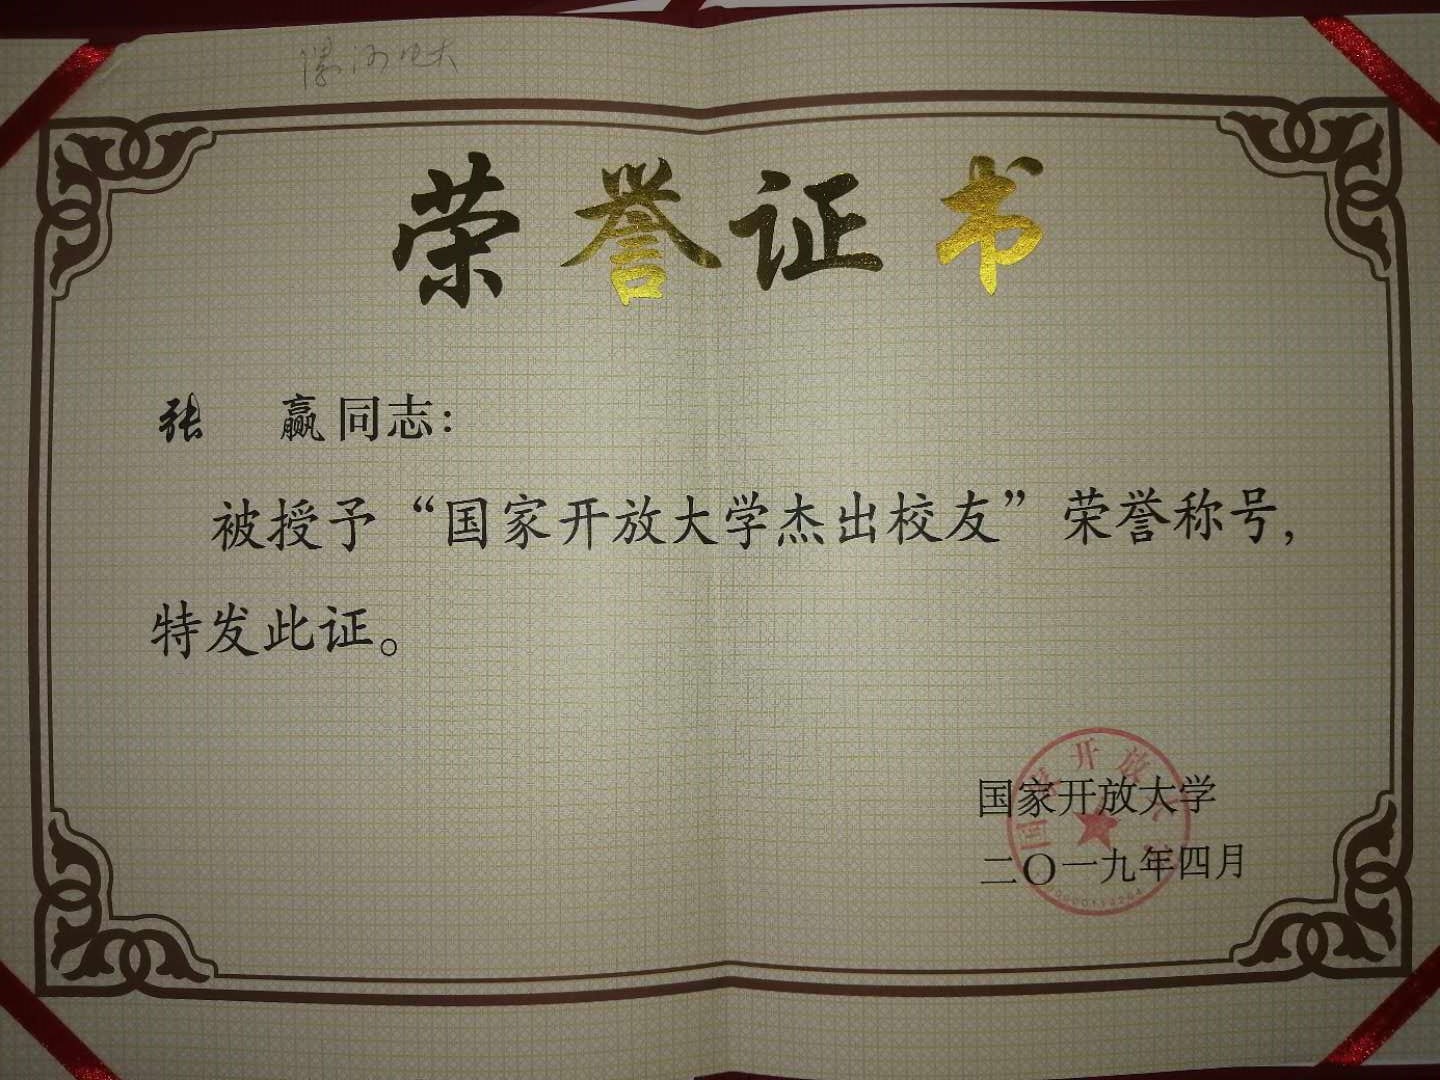 漯河电大
荣誉证书
张 赢同志：
被授予“国家开放大学杰出校友”荣誉称号，
特发此证。
国家开放大学
二〇一九年四月